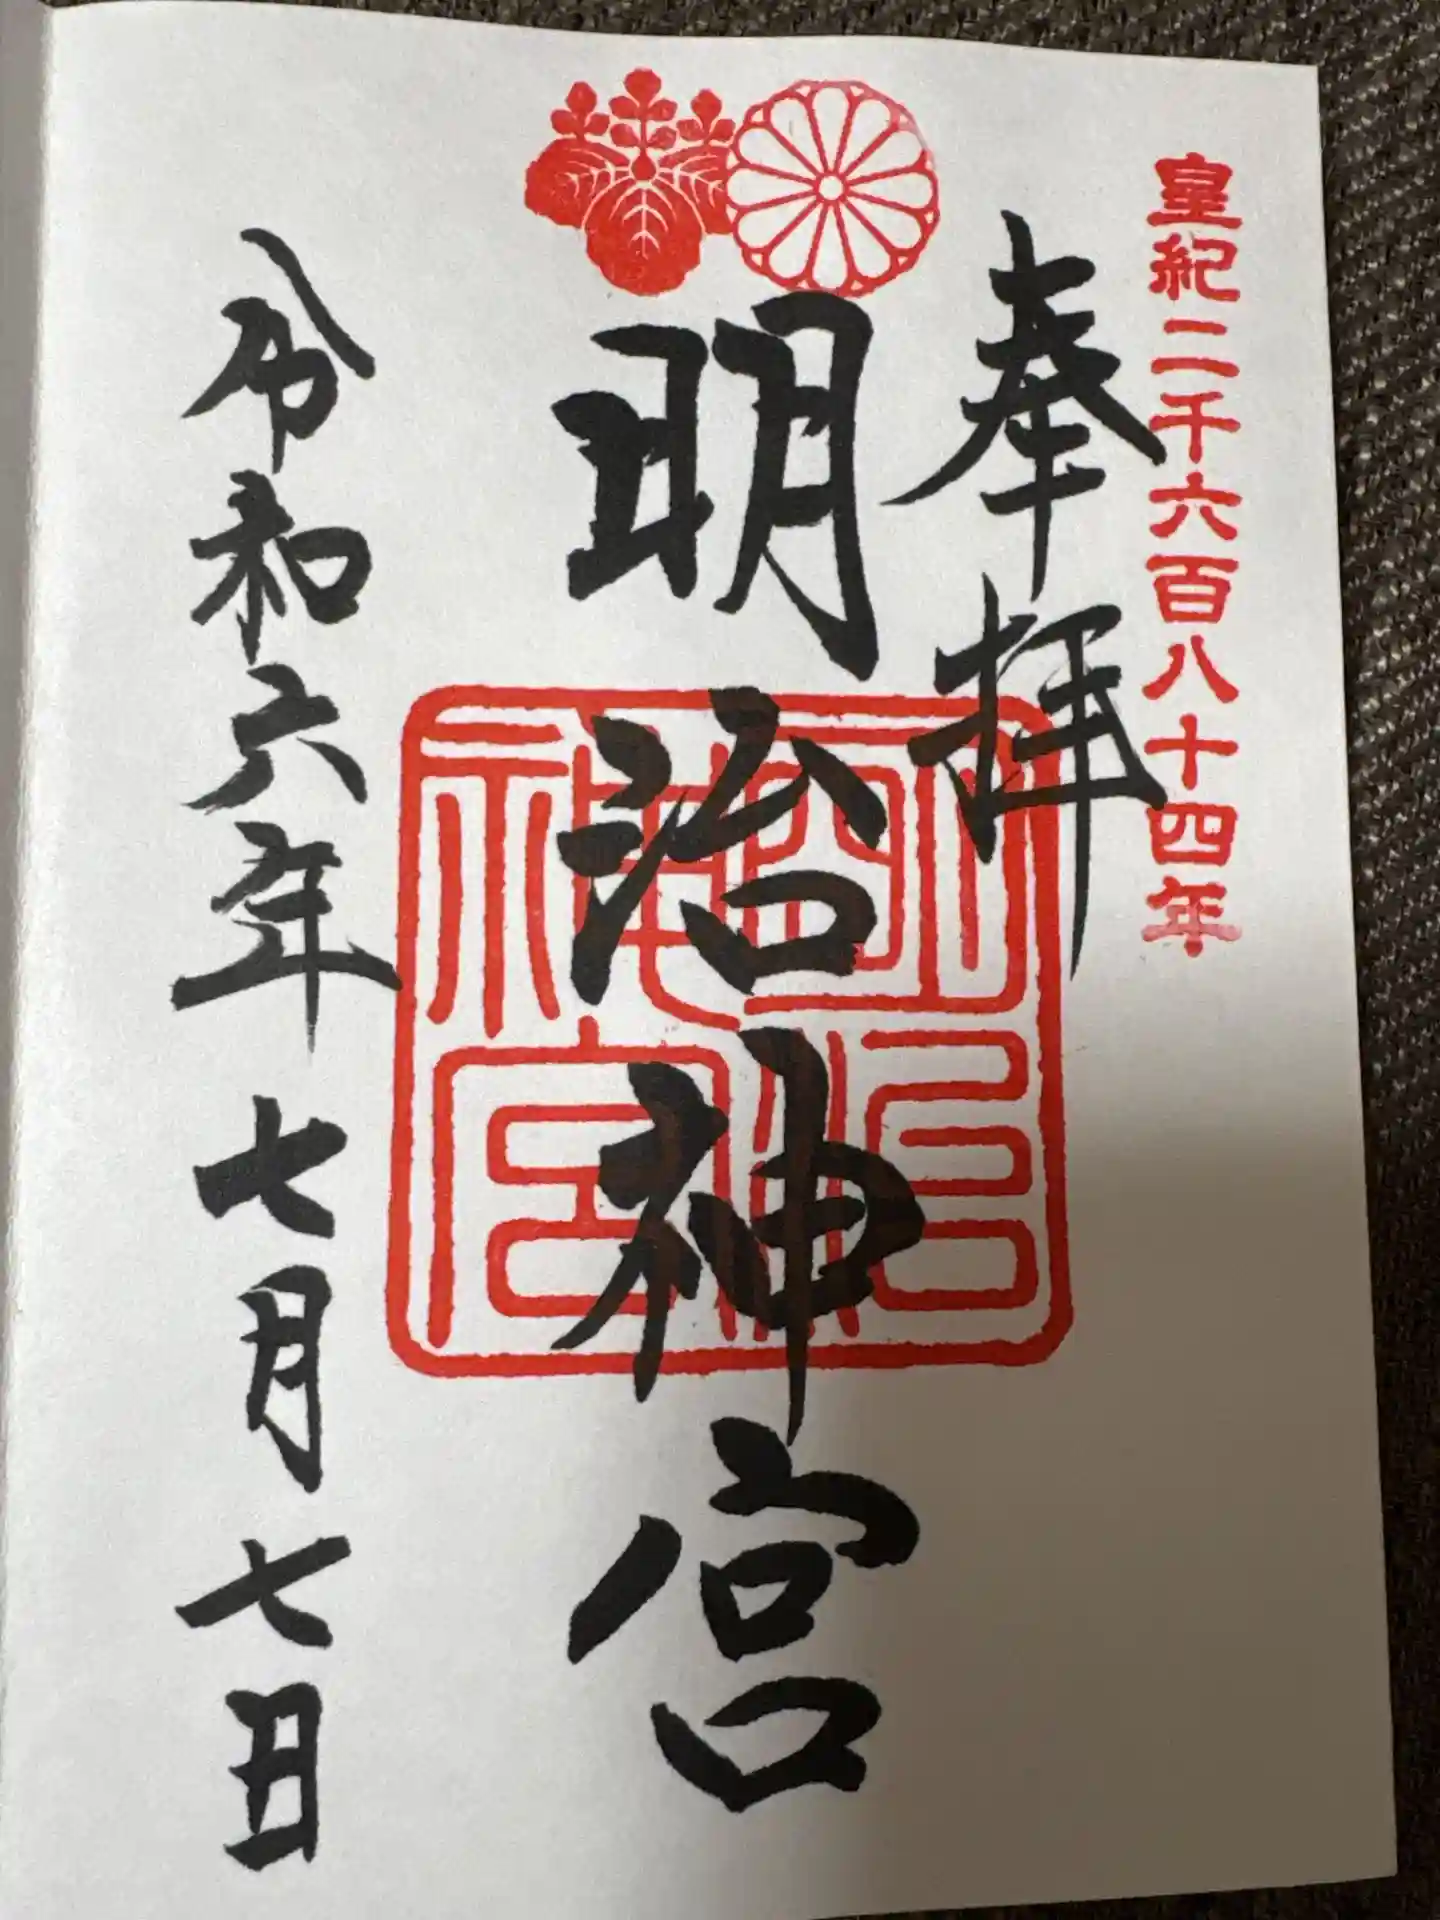 皇紀二千六百八十四年
奉拝
明治神宮
明治神宮
令和六年七月七日